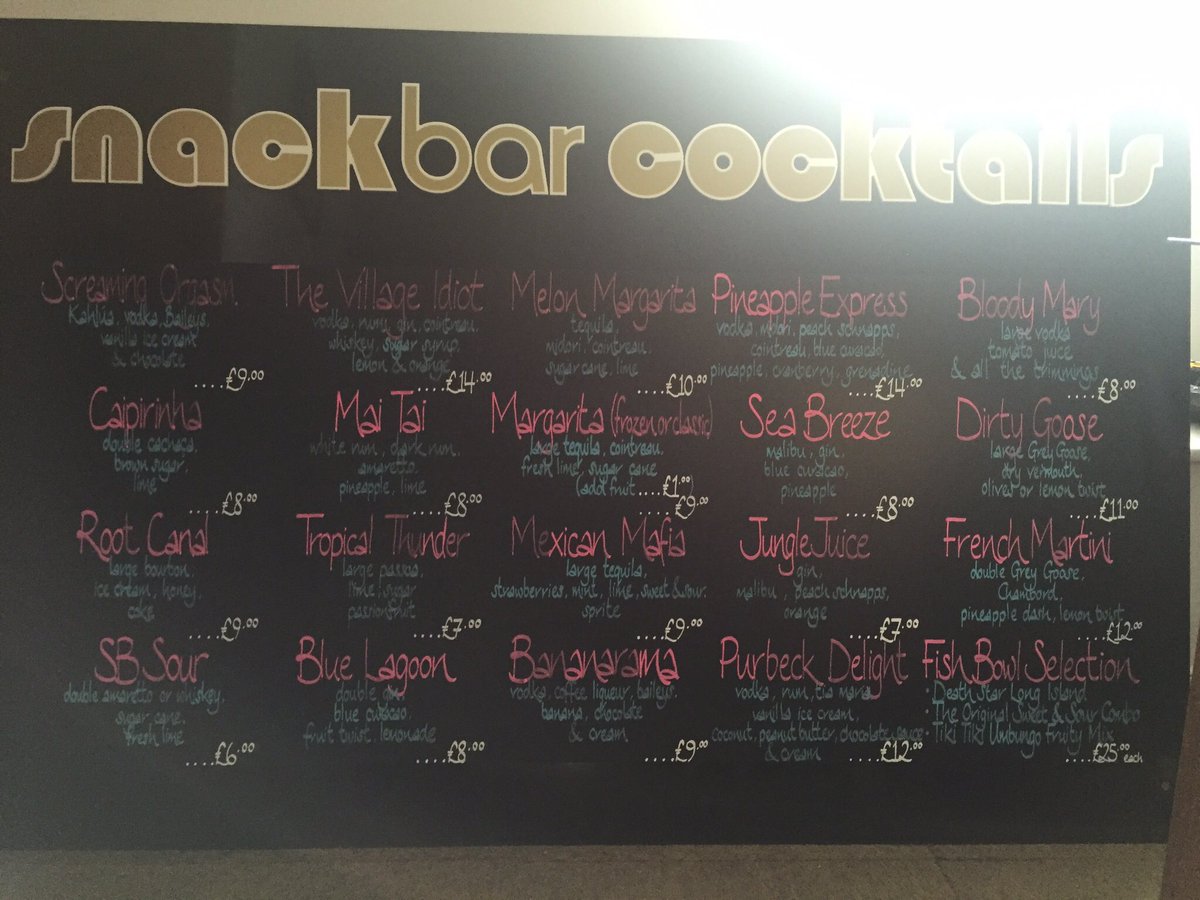 snackbar cocktails
Screaming Orgasm
Kahlua, vodka, Baileys,
vanilla ice cream
& chocolate
....£9.00
The Village Idiot
vodka, rum, gin, cointreau,
whiskey, sugar syrup,
lemon & orange
....£14.00
Melon Margarita
tequila,
midori, cointreau,
sugar cane, lime
....£10.00
Pineapple Express
vodka, midori, peach schnapps,
cointreau, blue curacao,
pineapple, cranberry, grenadine
....£14.00
Bloody Mary
large vodka
tomato juice
& all the trimmings
....£8.00
Caipirinha
double cachaca,
brown sugar,
lime
....£8.00
Mai Tai
white rum, dark rum,
amaretto,
pineapple, lime
....£8.00
Margarita (frozen or classic)
large tequila, cointreau,
fresh lime, sugar cane
(add fruit....£1.00)
....£9.00
Sea Breeze
malibu, gin,
blue curacao,
pineapple
....£8.00
Dirty Goose
large Grey Goose,
dry vermouth,
olive or lemon twist
....£11.00
Root Canal
large bourbon,
ice cream, honey,
coke
....£9.00
Tropical Thunder
large passoa,
lime, sugar
passionfruit
....£7.00
Mexican Mafia
large tequila,
strawberries, mint, lime, sweet & sour,
sprite
....£9.00
Jungle Juice
gin,
malibu, peach schnapps,
orange
....£7.00
French Martini
double Grey Goose,
Chambord,
pineapple dash, lemon twist
....£12.00
SB Sour
double amaretto or whiskey,
sugar cane,
fresh lime
....£6.00
Blue Lagoon
double gin,
blue curacao,
fruit twist lemonade
....£8.00
Bananarama
vodka, coffee liqueur, baileys,
banana, chocolate
& cream
....£9.00
Purbeck Delight
vodka, rum, tia maria,
vanilla ice cream,
coconut, peanut butter, chocolate sauce
& cream
....£12.00
Fish Bowl Selection
• Death Star Long Island
• The Original Sweet & Sour Combo
• Tiki Tiki Umbungo Fruity Mix
....£25.00 each